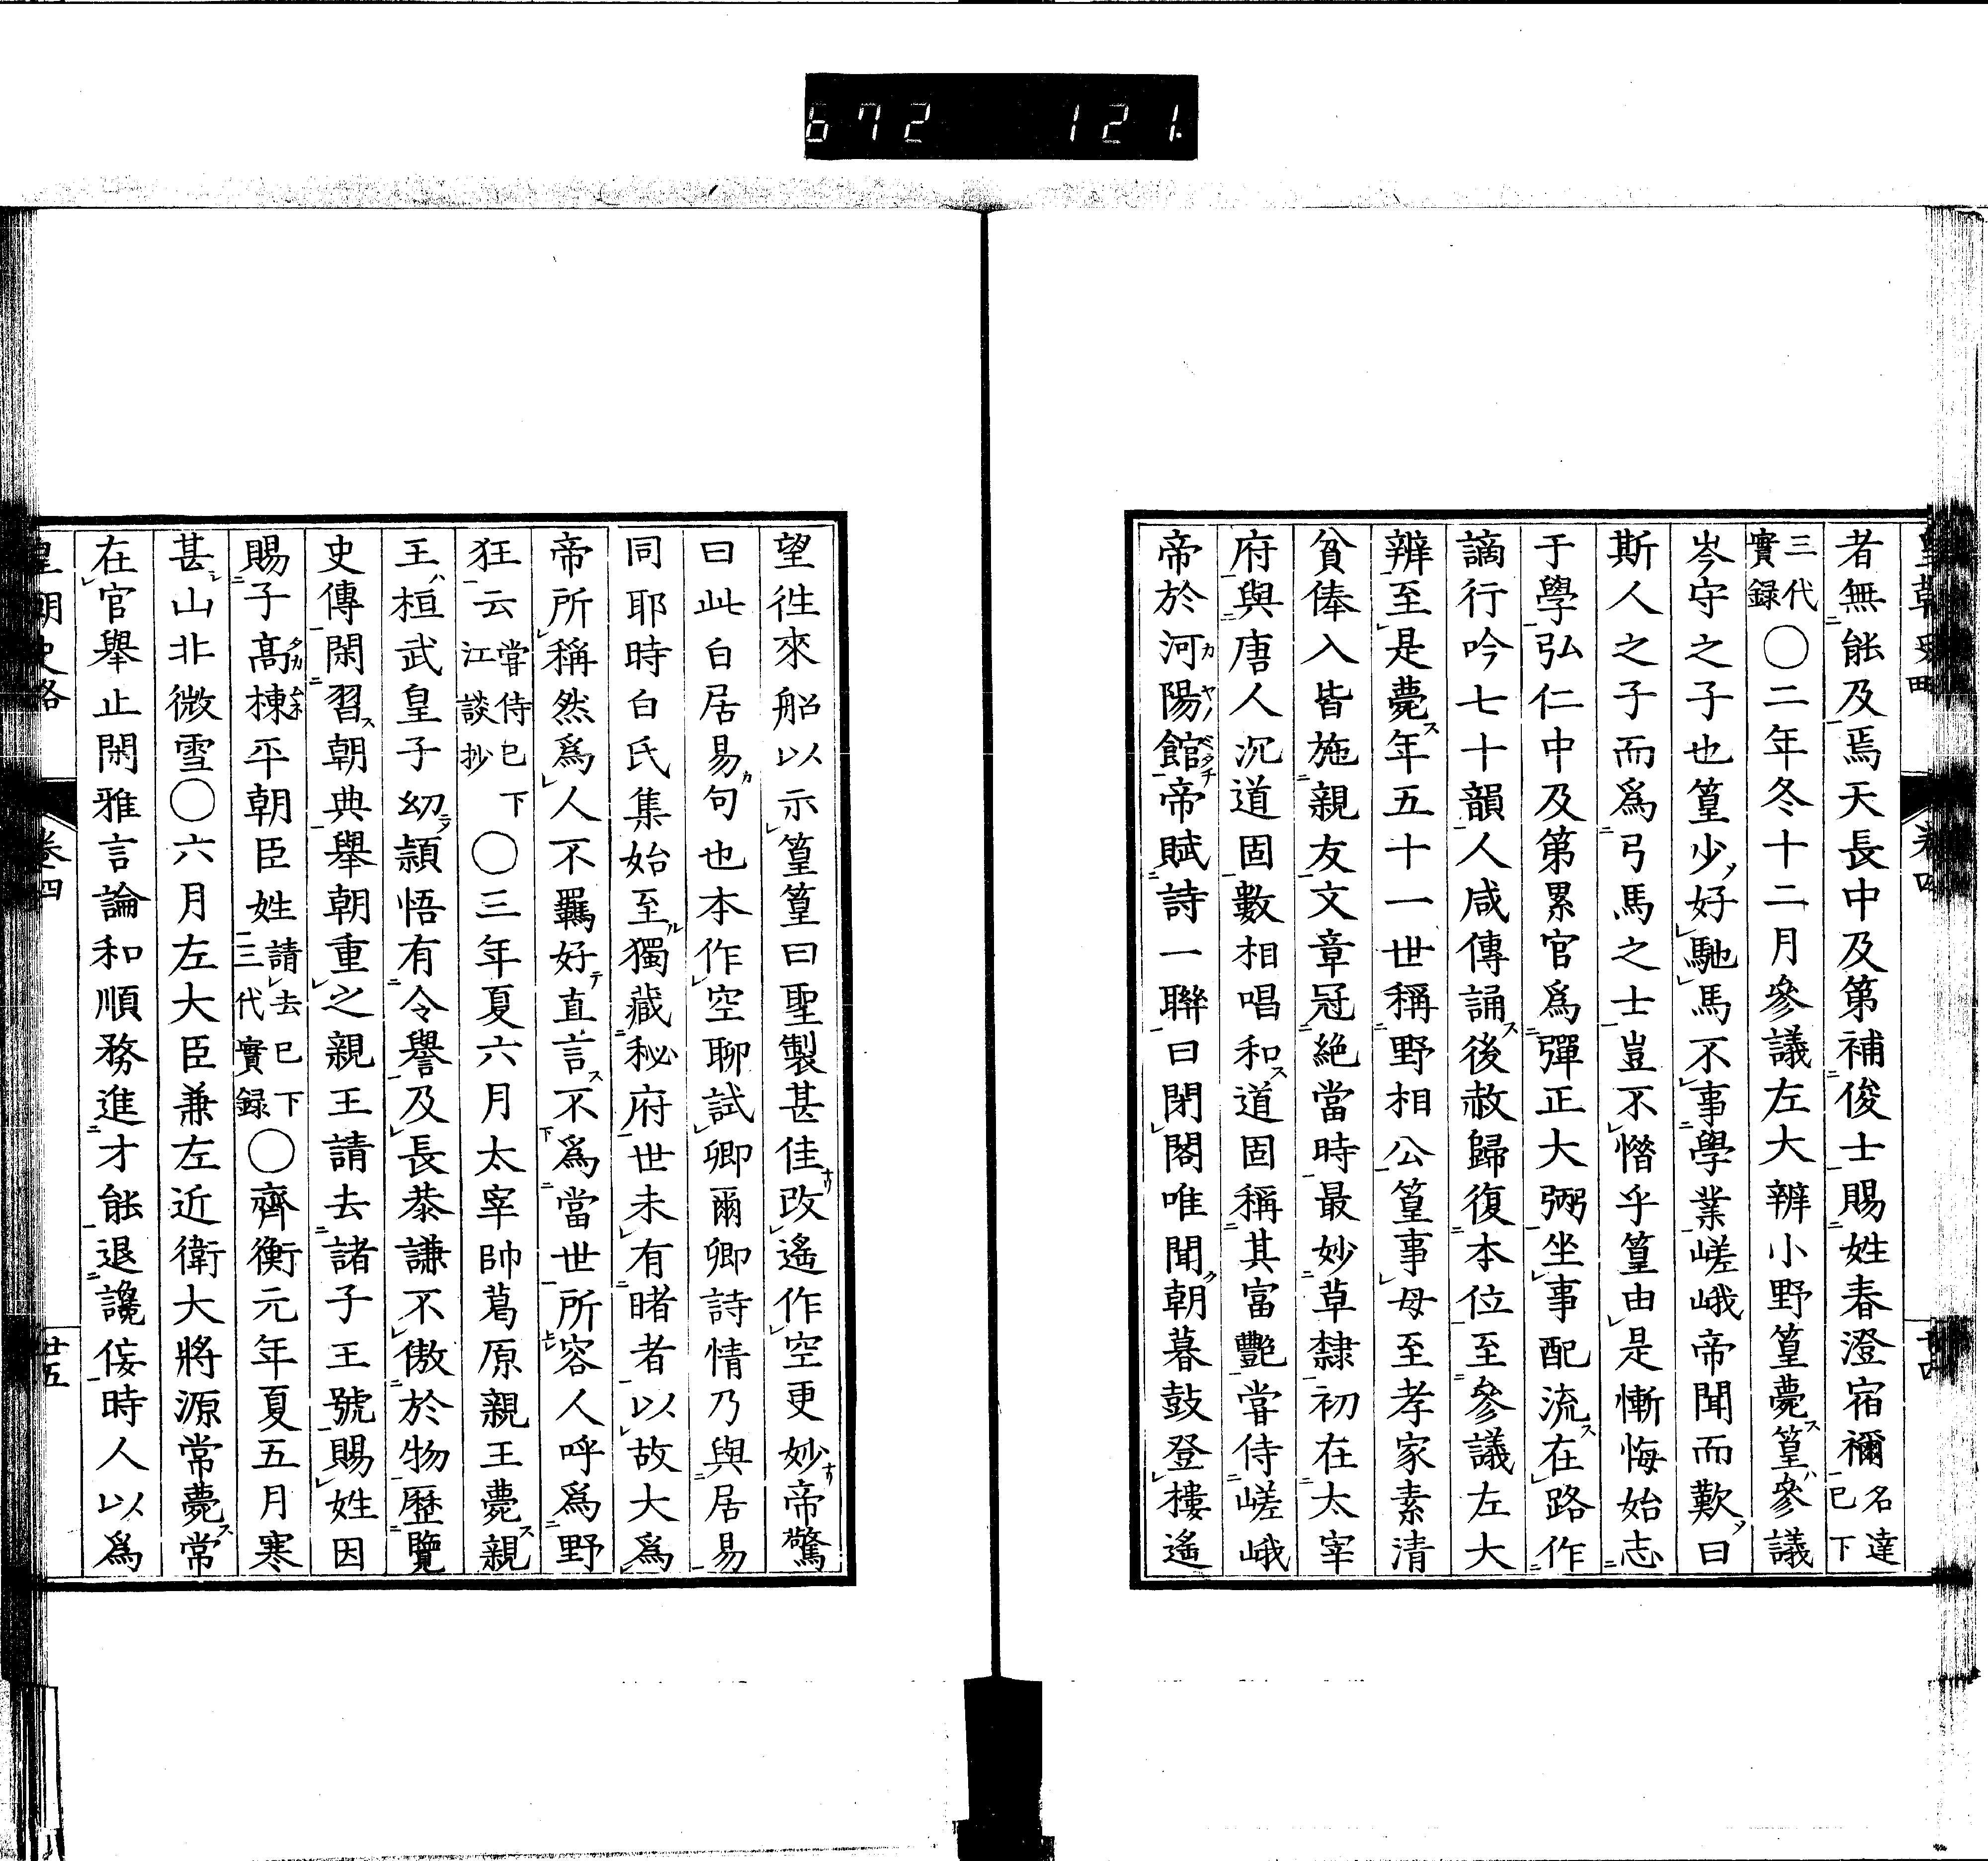 672 121.
者無能及焉天長中及第補俊士賜姓春澄宿禰名達已下
三代實録〇二年冬十二月參議左大辨小野篁薨ス篁ハ參議
岑守之子也篁少ヲ好馳馬不事學業嵯峨帝聞而歎ヲ曰
斯人之子而爲弓馬之士豈不憯乎篁由是慚悔始志
于學弘仁中及第累官爲彈正大弼坐事配流ス在路作
謫行吟七十韻人咸傳誦ス後赦歸復本位至參議左大
辨至是薨ス年五十一世稱野相公篁事母至孝家素清
貧俸入皆施親友文章冠絶當時最妙草隸初在太宰
府與唐人沉道固數相唱和ス道固稱其富艷嘗侍嵯峨
帝於河陽館帝賦詩一聯曰閉閣唯聞ク朝暮鼓登樓遙
望徃來船以示篁篁曰聖製甚佳ナリ改遙作空更妙ナリ帝驚
曰此白居易カ句也本作空聊試卿爾卿詩情乃與居易
同耶時白氏集始至ル獨藏秘府世未有睹者以故大爲
帝所稱然爲人不羈好テ直言ス不爲當世所容人呼爲野
狂云嘗侍已下江談抄〇三年夏六月太宰帥葛原親王薨ス親
王ハ桓武皇子幼ヲ頴悟有令譽及長恭謙不傲於物歷覽
史傳閑習ス朝典舉朝重之親王請去諸子王號賜姓因
賜子高棟平朝臣姓請去已下三代實録〇齊衡元年夏五月寒
甚シ山非微雪〇六月左大臣兼左近衛大將源常薨ス常
在官舉止閑雅言論和順務進才能退讒侫時人以爲
皇朝史略 卷四 廿五